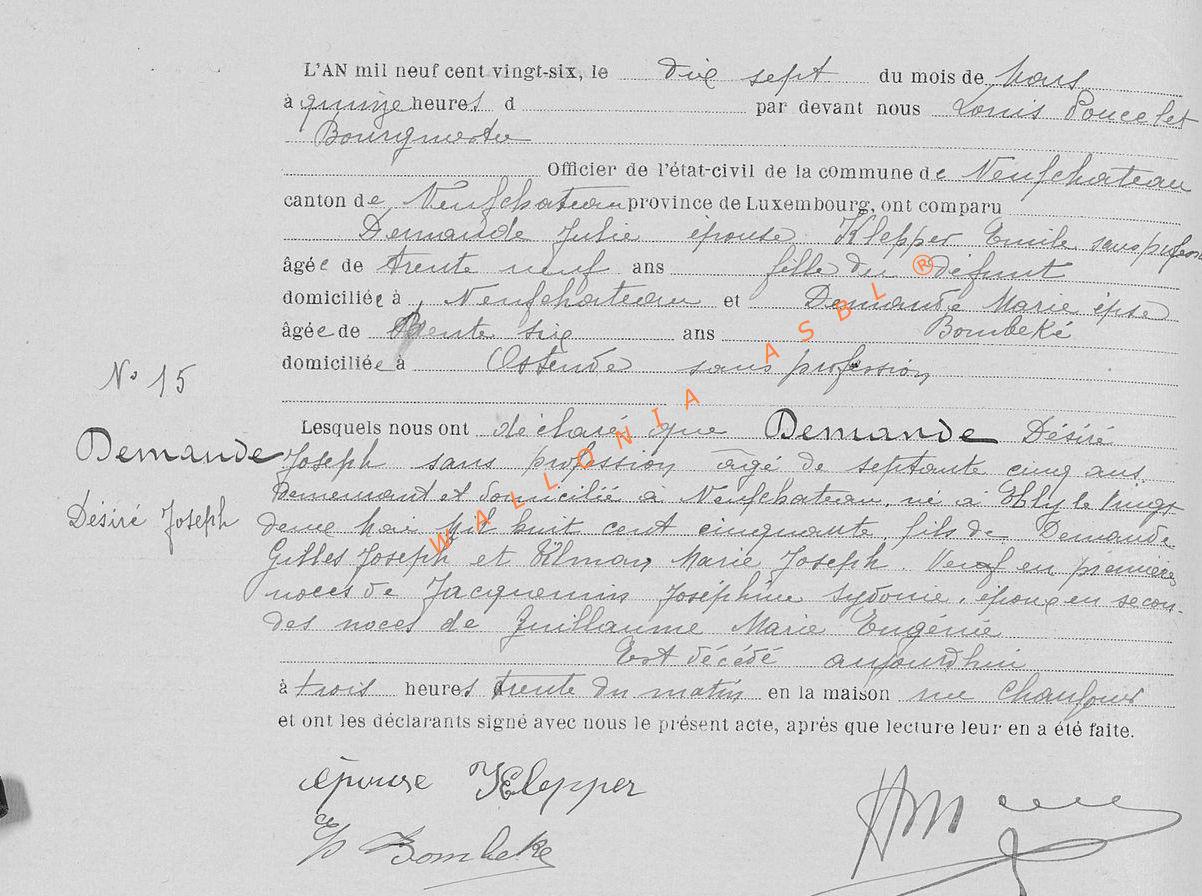 L'AN mil neuf cent vingt-six, le dix sept du mois de Mars
à quinze heures d par devant nous Louis Poncelet
Bourgmestre
Officier de l'état-civil de la commune de Neufchateau
canton de Neufchateau province de Luxembourg, ont comparu
Demande Julie épouse Klepper Emile sans profession
âgée de trente neuf ans fille du défunt
domiciliée à Neufchateau et Demande Marie épse
âgée de trente six ans Bombeké
domiciliée à Ostende sans profession
No 15
Lesquels nous ont déclaré que Demande Désiré
Demande
Joseph sans profession âgé de septante cinq ans
Demeurant et domicilié à Neufchateau, né à Ebly le vingt
Désiré Joseph
deux Mai Mil huit cent cinquante, fils de Demande
Gilles Joseph et Marie Joseph. Veuf en premières
noces de Jacquemin Joséphine Sydonie, époux en secon-
des noces de Guillaume Marie Eugénie
Est décédé aujourd'hui
à trois heures trente du matin en la maison rue Chaufour
et ont les déclarants signé avec nous le présent acte, après que lecture leur en a été faite.
épouse Klepper
Bombeke
WALLONIA ASBL ®